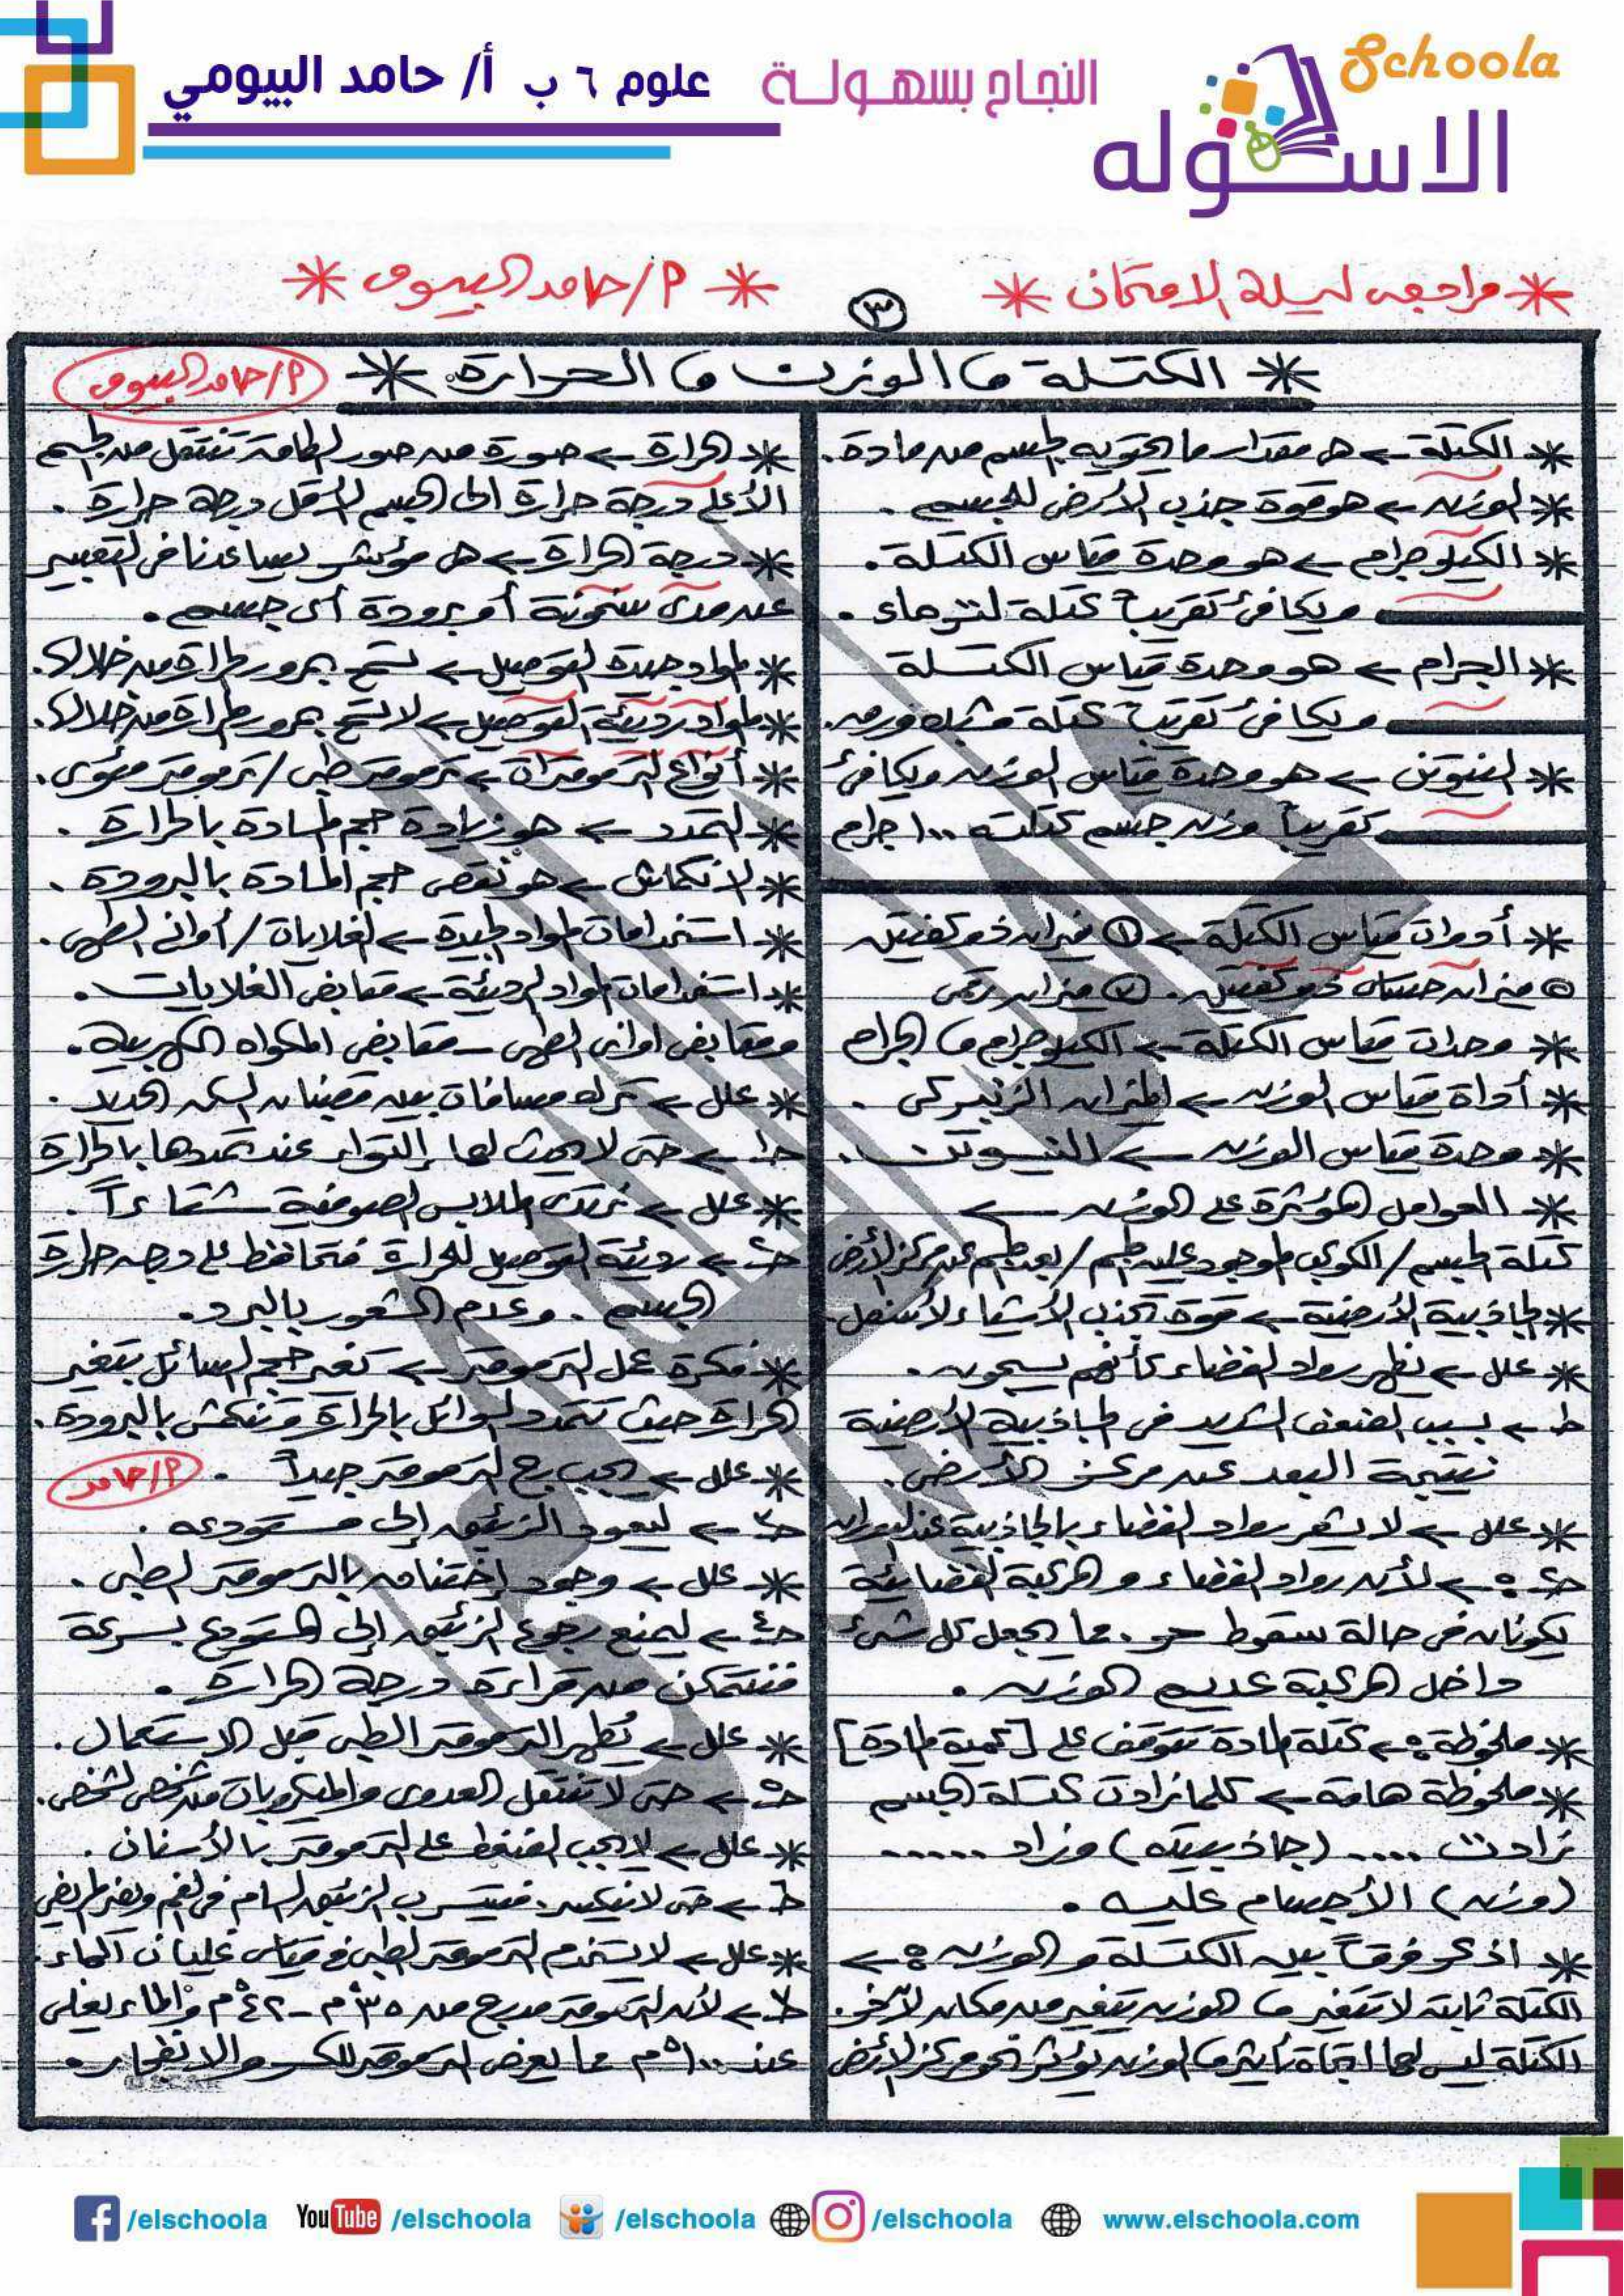 Schoola
الاسكوله
النجاح بسهولة
علوم ٦ ب أ/ حامد البيومي
* مراجعة ليلة الامتحان *
* أ/حامد البيومى *
٣
* الكتلة ، الوزن ، الحرارة *
أ/حامد البيومى
* الكتلة ← هى مقدار ما يحتويه الجسم من مادة.
* الوزن ← هو قوة جذب الأرض للجسم.
* الكيلوجرام ← هو وحدة قياس الكتلة.
ويكافئ تقريباً كتلة لتر ماء.
* الجرام ← هو وحدة قياس الكتلة
ويكافئ تقريباً كتلة مشبك ورق.
* النيوتن ← هو وحدة قياس الوزن ويكافئ
تقريباً وزن جسم كتلته ١٠٠ جرام
* أدوات قياس الكتلة ← ① ميزان ذو كفتين
ميزان حساس ذو كفتين. ③ ميزان رقمى
* وحدات قياس الكتلة ← الكيلوجرام ، الجرام
* أداة قياس الوزن ← الميزان الزنبركى.
* وحدة قياس الوزن ← النيوتن.
* العوامل المؤثرة على الوزن ←
كتلة الجسم / الكوكب الموجود عليه الجسم / بعد الجسم عن مركز الأرض
* الجاذبية الأرضية ← قوة تجذب الأشياء لأسفل.
* علل ← يظهر رواد الفضاء كأنهم يسبحون.
جـ١ ← بسبب الضعف الشديد فى الجاذبية الأرضية
نتيجة البعد عن مركز الأرض.
* علل ← لا يشعر رواد الفضاء بالجاذبية عند الدوران
جـ٢ ← لأن رواد الفضاء والمركبة الفضائية
يكونان فى حالة سقوط حر. مما يجعل كل شئ
داخل المركبة عديم الوزن.
* ملحوظة: ← كتلة المادة تتوقف على [كمية المادة]
* ملحوظة هامة ← كلما زادت كتلة الجسم
زادت .... (جاذبيته) وزاد .......
(وزن) الأجسام عليه.
* اذكر فرقاً بين الكتلة والوزن: ←
الكتلة ثابتة لا تتغير ، الوزن يتغير من مكان لآخر.
الكتلة ليس لها اتجاه تأثير ، الوزن يؤثر نحو مركز الأرض
* الحرارة ← صورة من صور الطاقة تنتقل من الجسم
الأعلى درجة حرارة الى الجسم الأقل درجة حرارة.
* درجة الحرارة ← هى مؤشر يساعدنا فى التعبير
عن مدى سخونة أو برودة أى جسم.
* المواد جيدة التوصيل ← تسمح بمرور الحرارة من خلالها.
* المواد رديئة التوصيل ← لا تسمح بمرور الحرارة من خلالها.
* أنواع الترمومترات ← ترمومتر طبى / ترمومتر مئوى.
* التمدد ← هو زيادة حجم المادة بالحرارة.
* الانكماش ← هو نقص حجم المادة بالبرودة.
* استخدامات المواد الجيدة ← الغلايات / أوانى الطهى.
* استخدامات المواد الرديئة ← مقابض الغلايات.
ومقابض اوانى الطهى - مقابض المكواه الكهربية.
* علل ← ترك مسافات بين قضبان السكه الحديد.
جـ١ ← حتى لا يحدث لها إلتواء عند تمددها بالحرارة
* علل ← نرتدى الملابس الصوفية شتاءاً.
جـ٢ ← رديئة التوصيل للحرارة فتحافظ على درجه حرارة
الجسم. وعدم الشعور بالبرد.
* فكرة عمل الترمومتر ← تغير حجم السائل بتغير
الحرارة حيث تتمدد السوائل بالحرارة وتنكمش بالبرودة.
* علل ← يجب رج الترمومتر جيداً.
أ/حامد
جـ٣ ← ليعود الزئبق إلى مستودعه.
* علل ← وجود إختناق بالترمومتر الطبى.
جـ٤ ← ليمنع رجوع الزئبق إلى المستودع بسرعة
فنتمكن من قراءة درجة الحرارة.
* علل ← يُطهر الترمومتر الطبى قبل الاستعمال.
جـ٥ ← حتى لا تنتقل العدوى والميكروبات من شخص لشخص.
* علل ← لا يجب الضغط على الترمومتر بالأسنان.
جـ٦ ← حتى لا ينكسر. فيتسرب الزئبق السام فى الفم ويضر المريض
* علل ← لا يستخدم الترمومتر الطبى فى قياس غليان الماء.
جـ٧ ← لأن الترمومتر مدرج من ٣٥°م - ٤٢°م والماء يغلى
عند ١٠٠°م مما يعرض الترمومتر للكسر والانفجار.
/elschoola
YouTube /elschoola
/elschoola
/elschoola
www.elschoola.com